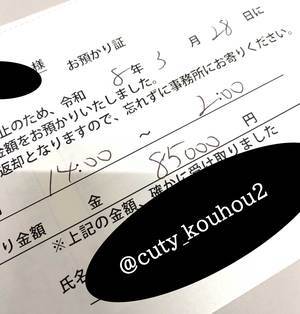 様 お預かり証
止のため、令和 8年 3月 28日に
金額をお預かりいたしました。
返却となりますので、忘れずに事務所にお寄りください。
14:00 ～ 2:00
り金額 金 85000 円
※上記の金額、確かに受け取りました
氏名
@cuty_kouhou2